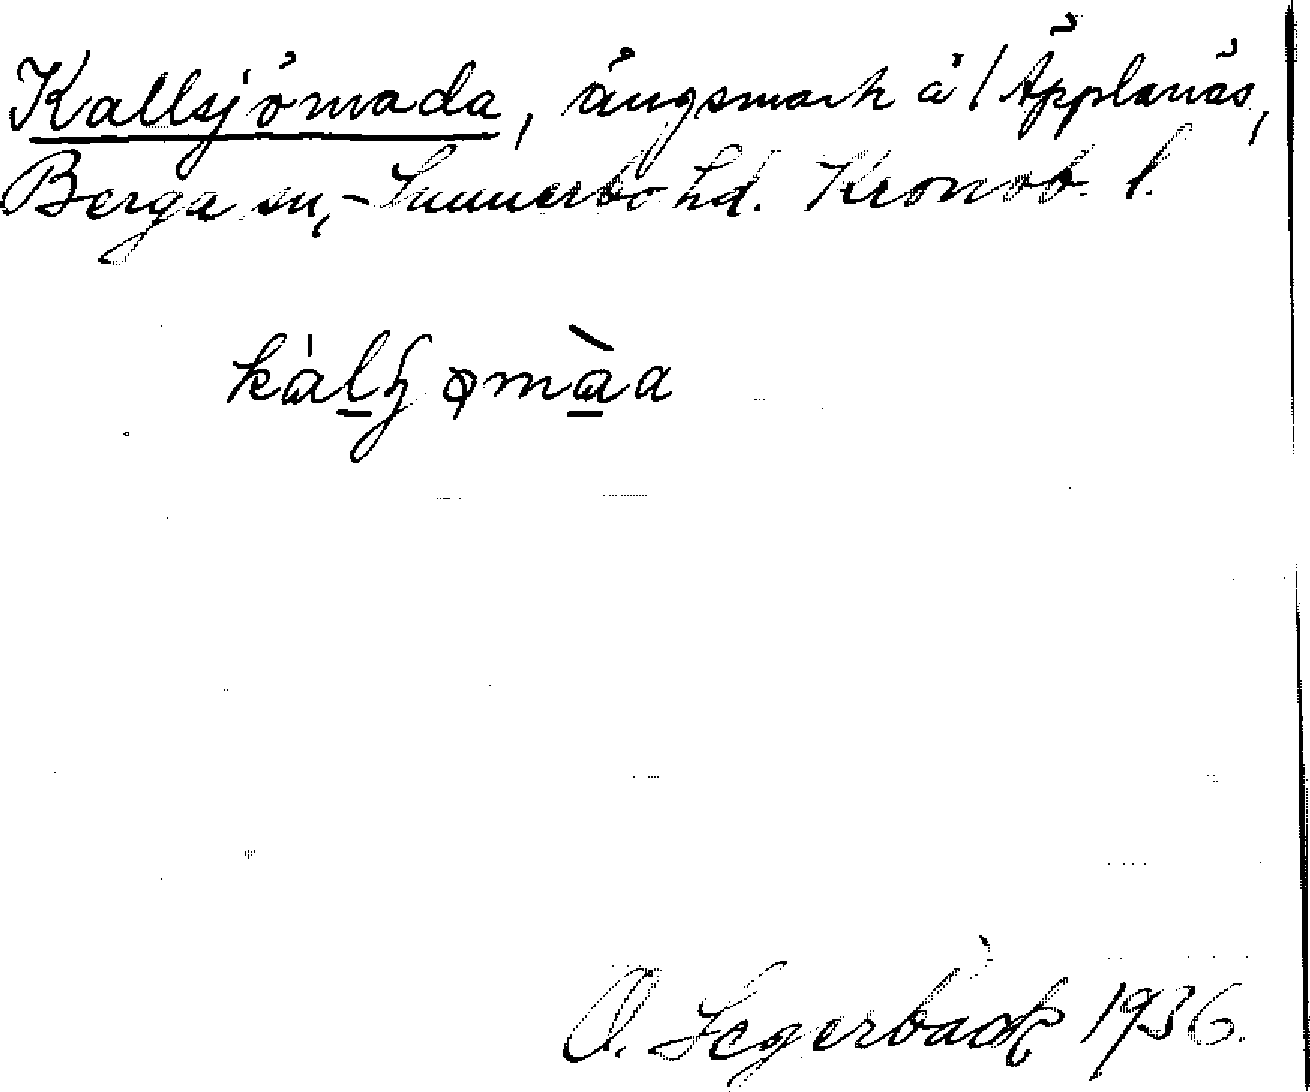 Kallsjömada, ängsmark å / Äpplanäs,
Berga sn, Sunnerbo hd. Kronob. l.
O. Segerbäck 1936.